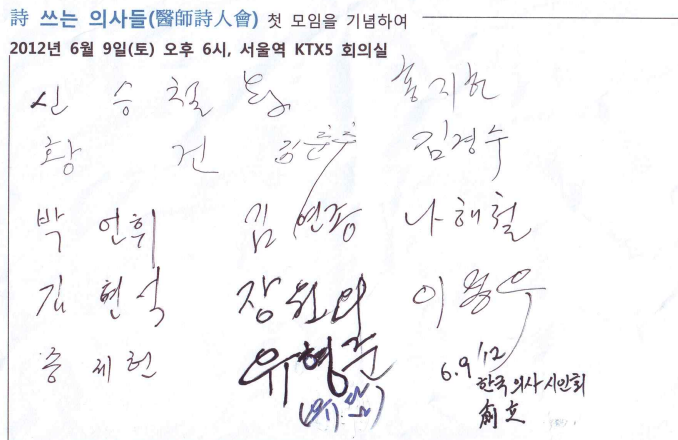 詩 쓰는 의사들(醫師詩人會) 첫 모임을 기념하여
2012년 6월 9일(토) 오후 6시, 서울역 KTX5 회의실
신 승 철 홍지헌
황 건 김춘추 김경수
박 언휘 김 연종 나해철
김 현식 장원의 이용우
송 세헌 유형준
6.9 '12
한국의사시인회
創立